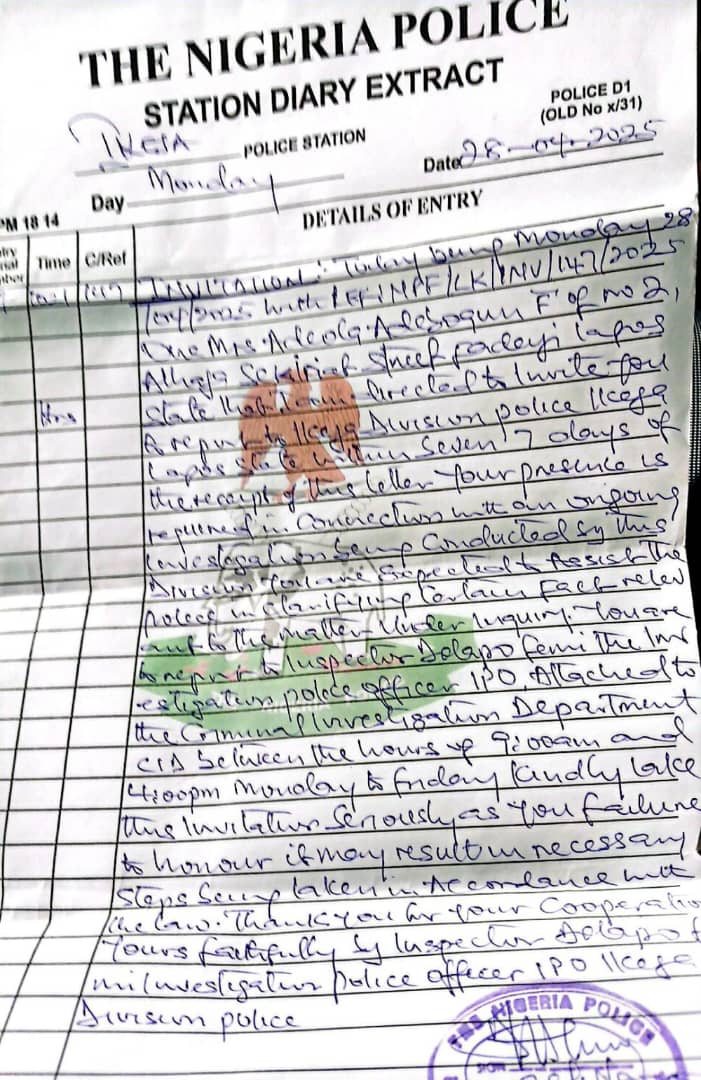 THE NIGERIA POLICE
STATION DIARY EXTRACT
POLICE D1
(OLD No x/31)
IKEJA POLICE STATION
Date 28-04-2025
Day Monday
PM 18 14
DETAILS OF ENTRY
Time C/Ref
INVITATION: Today being Monday 28
/04/2025 with REF/NPF/LK/INV/147/2025
One Mrs. Adeola Adebogun F of no 2,
Alhaja Street fadeyi Lagos
State that I am Directed to Invite you
Hrs
A report to Ikeja Division police Ikeja
Lagos State within Seven 7 days of
the receipt of this letter Your presence is
required in Connection with an ongoing
Investigation being Conducted by this
Division You are Expected to Assist the
police in clarifying Certain Fact relev
ant to the matter Under Inquiry. You are
to report to Inspector Dolapo femi The Inv
estigation police officer IPO Attached to
the Criminal Investigation Department
CID Between the hours of 9:00am and
4:00pm Monday to friday kindly take
this Invitation Seriously as you failure
to honour it may result in necessary
Steps being taken in Accordance with
the law. Thank you for your Cooperatio
Yours faithfully by Inspector Dolapo f
mi Investigation police officer IPO Ikeja
Division police
THE NIGERIA POLICE